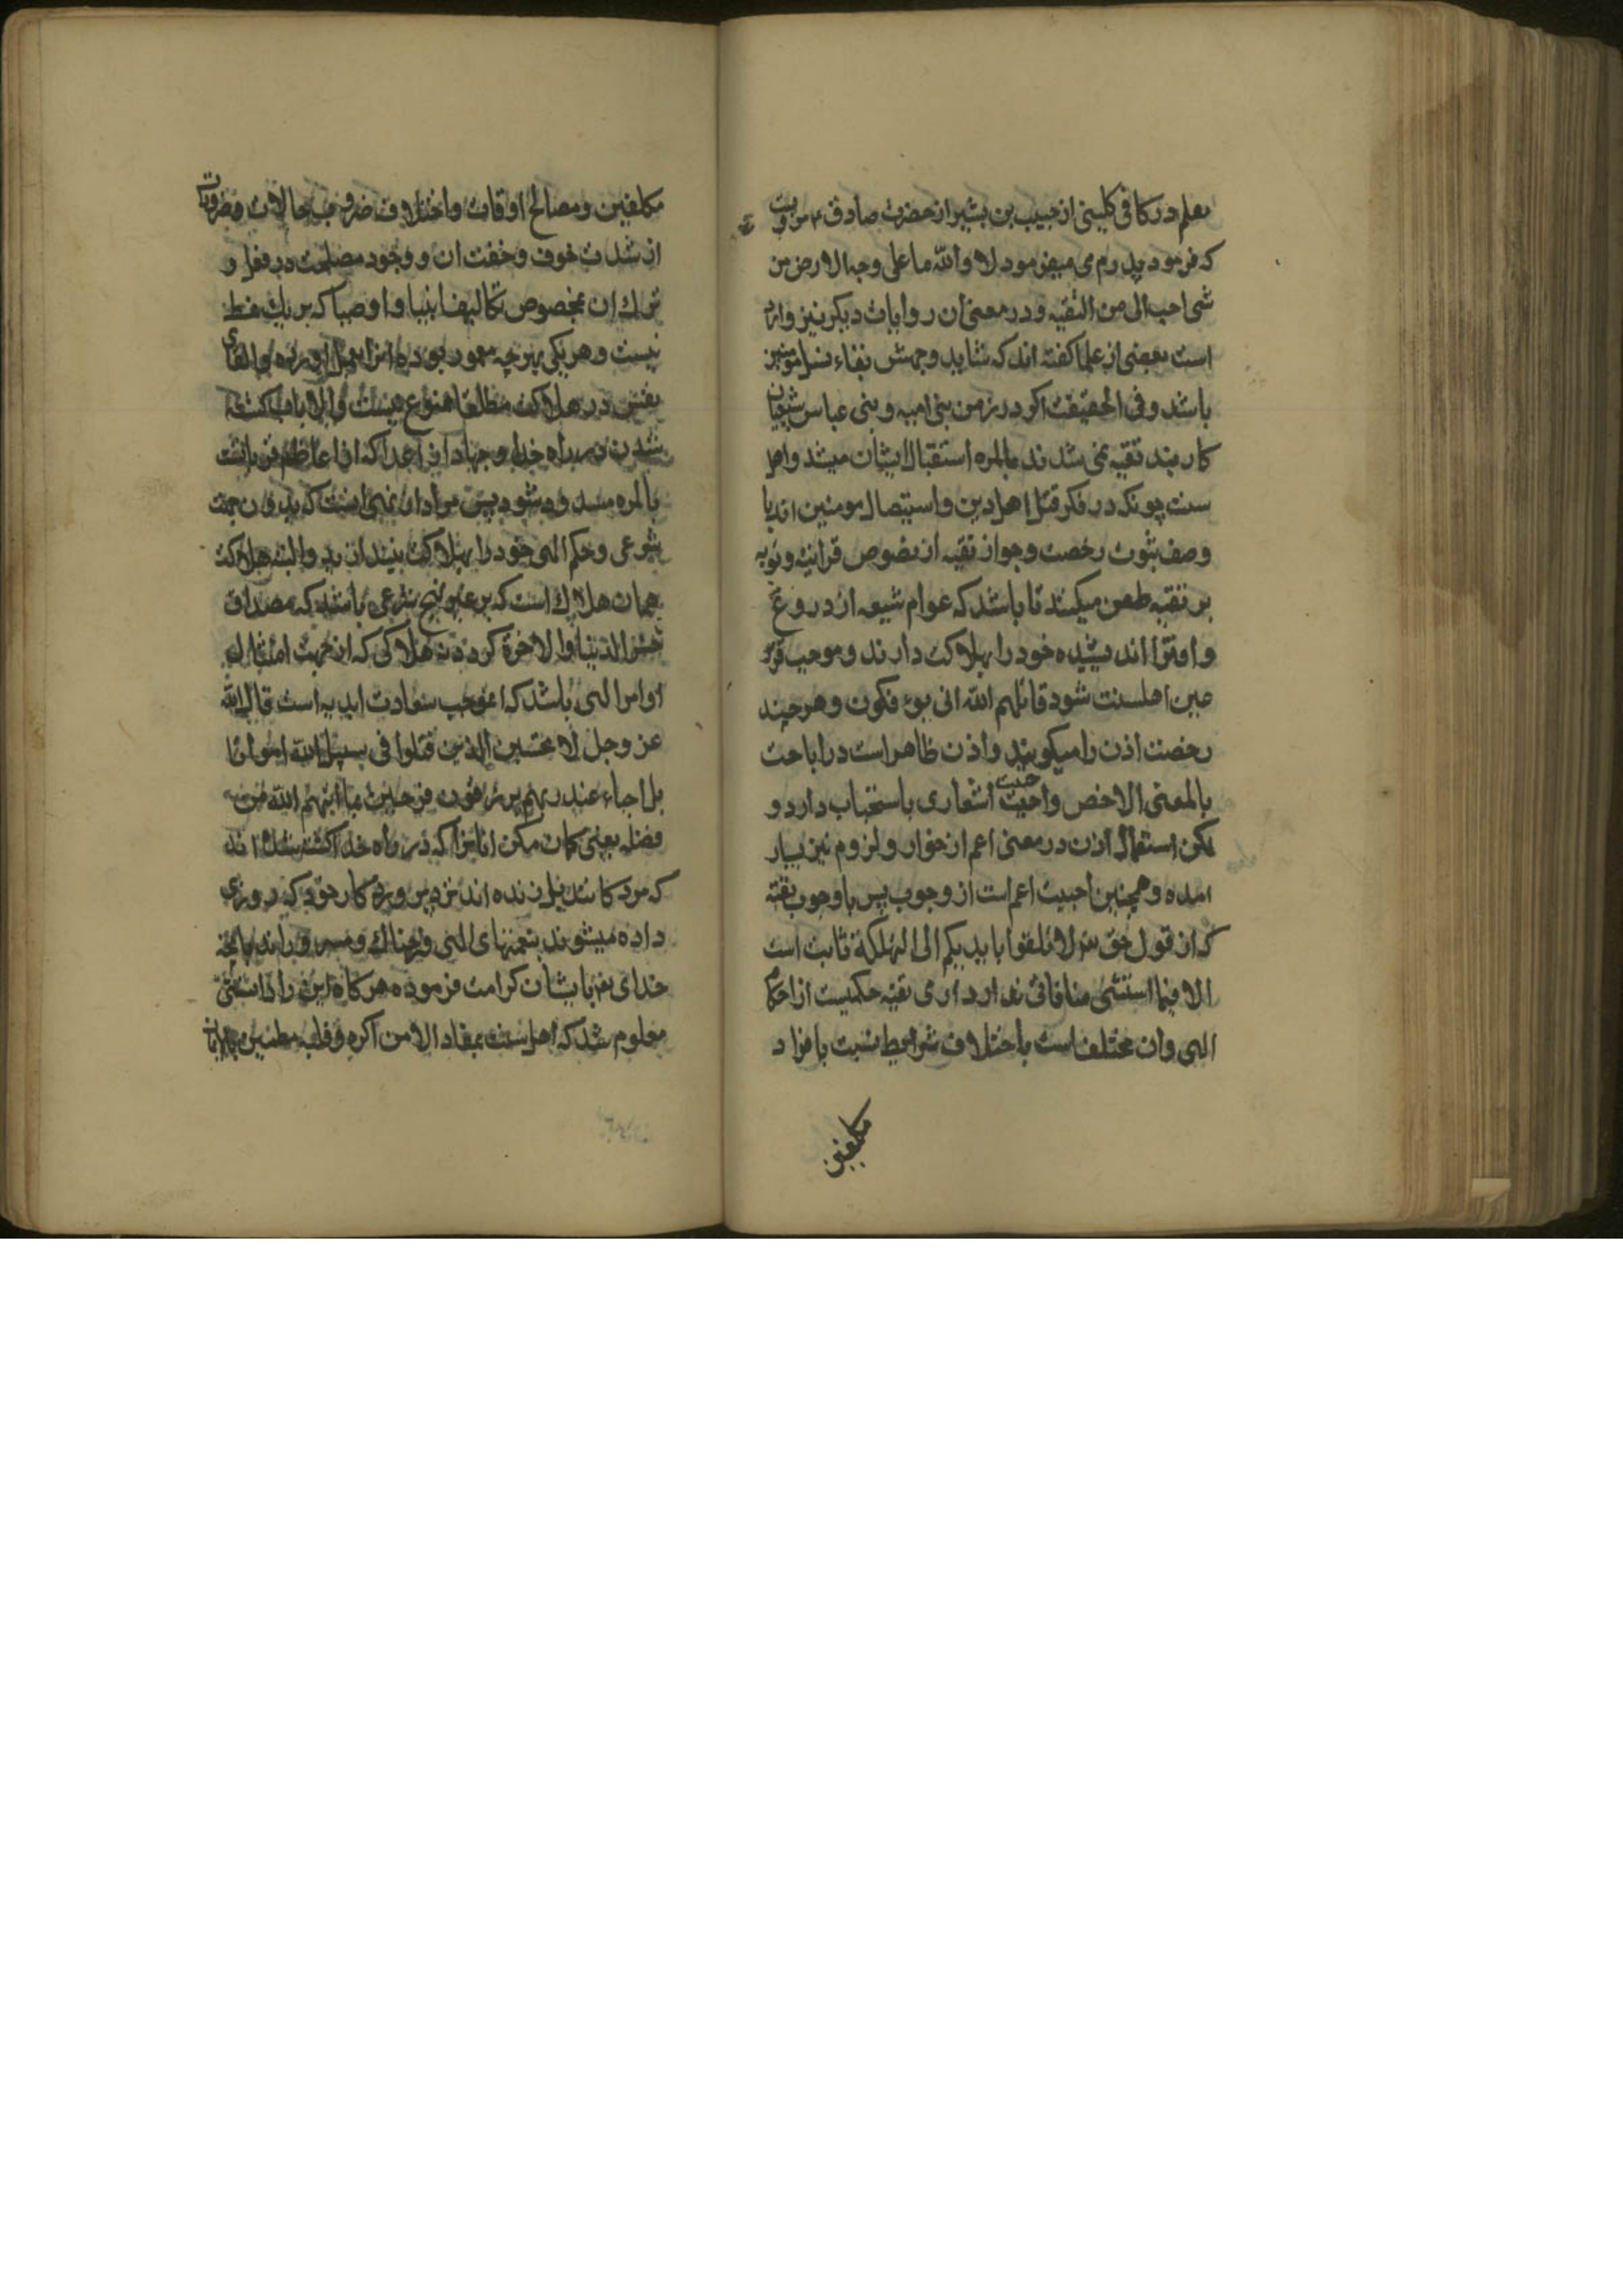 یعلم در کافی کلینی از حبیب بن بشیر از حضرت صادق ع مرویست
که فرمود پدرم می میفرمود لا والله ما علی وجه الارض من
شی احب الی من التقیه و در معنی ان روایات دیگر نیز وارد
است بعضی از علما کفته اند که شاید وجهش بقاء نسل مومنین
باشد و فی الحقیقت اکر در زمن بنی امیه و بنی عباس شیعیان
کاربند تقیه نمی شدند بالمره استقبال ایشان میشد و اهل
سنت چونکه در فکر قتل اهل دین و استیصال مومنین اند با
وصف ثبوت رخصت و جواز تقیه از نصوص قرانیه و نبویه
بر تقیه طعن میکنند تا باشد که عوام شیعه از دروغ
و افترا اندیشیده خود را بهلاکت دارند و موجب قرة
عین اهلسنت شود قاتلهم الله انی یؤفکون و هر چند
رخصت اذن را میکویند و اذن ظاهر است در اباحت
بالمعنی الاخص و احبیت اشعاری باستحباب دارد و
لکن استعمال اذن در معنی اعم از جواز و لزوم نیز بسیار
امده و همچنین احبیت اعم است از وجوب پس با وجوب تقیه
که از قول حق لا تلقوا بایدیکم الی التهلکة ثابت است
الا فیما استثنی منافاتی ندارد اری تقیه حکمیست از احکام
الهی و ان مختلف است باختلاف شرایط نسبت بافراد
مکلفین
مکلفین و مصالح اوقات و اختلاف ضروب حالات و ضرورت
از شدت خوف و خفت ان و وجود مصلحت در فعل و
ترک ان بخصوص تکالیف انبیا و اوصیا که بر یک نمط
نیست و هر یکی بهر چه مامور بوده انرا بعمل اورده و القای
نفس در هلاکت مطلقا ممنوع نیست و الا باب کشته
شدن در راه خدا و جهاد از اعدا که از اعاظم قربانست
بالمره مسدود میشود پس مراد از نهی انست که بدون جهت
شرعی و حکم الهی خود را بهلاکت نیندازید و البته هلاکت
همان هلاک است که بر غیر نهج شرعی باشد که مصداق
خسر الدنیا والاخرة کردد نه هلاکی که از جهت امتثال
اوامر الهی باشد که موجب سعادت ابدیه است قال الله
عز وجل لا تحسبن الذین قتلوا فی سبیل الله امواتا
بل احیاء عند ربهم یرزقون فرحین بما اتیهم الله من
فضله یعنی کمان مکن انانرا که در راه خدا کشته شده اند
که مردکانند بل زنده اند نزد پروردکار خود که روزی
داده میشوند بنعمتهای الهی و فرحناک و مسرورند بانچه
خدای تعالی بایشان کرامت فرموده هرکاه این را دانستی
معلوم شد که اهل سنت بمفاد الا من اکره و قلبه مطمئن بالایمان